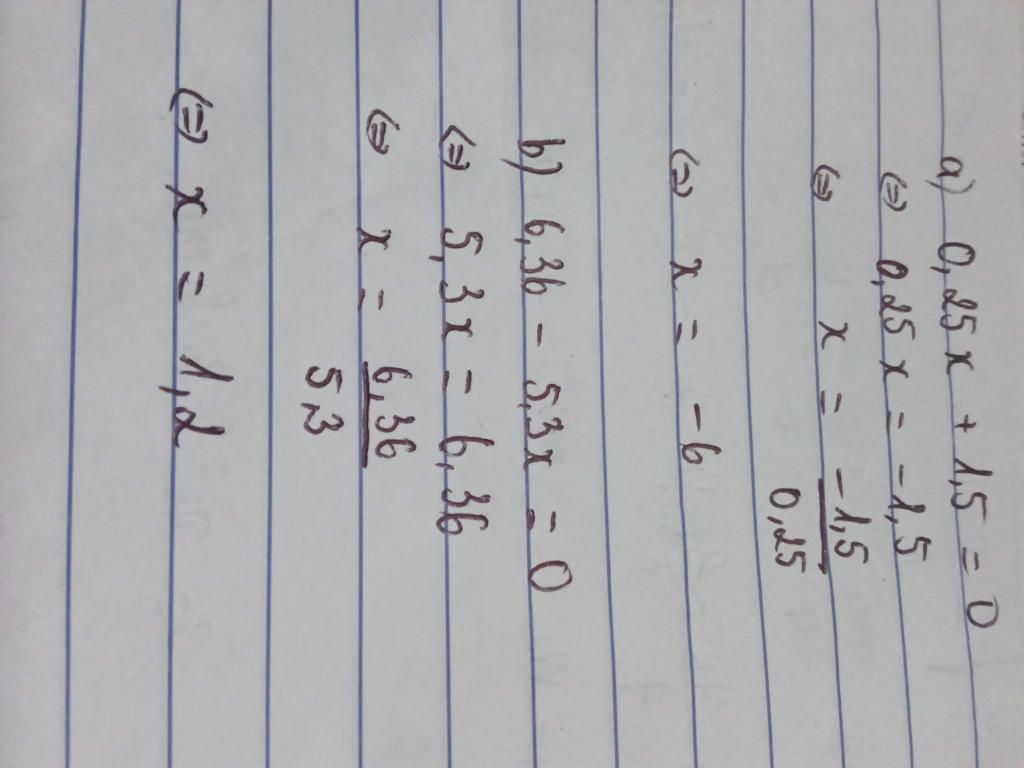 a) 0,25x + 1,5 = 0
(=) 0,25x = -1,5
(=) x = -1,5/0,25
(=) x = -6
b) 6,36 - 5,3x = 0
(=) 5,3x = 6,36
(=) x = 6,36/5,3
(=) x = 1,2